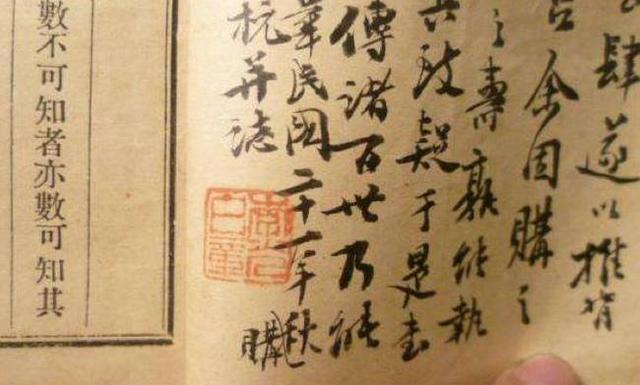 肆遂以推背
余因購之
之壽孰能執
致疑于是書
傳諸百世乃能
華民國二十一年秋購
杭并誌
數不可知者亦數可知其